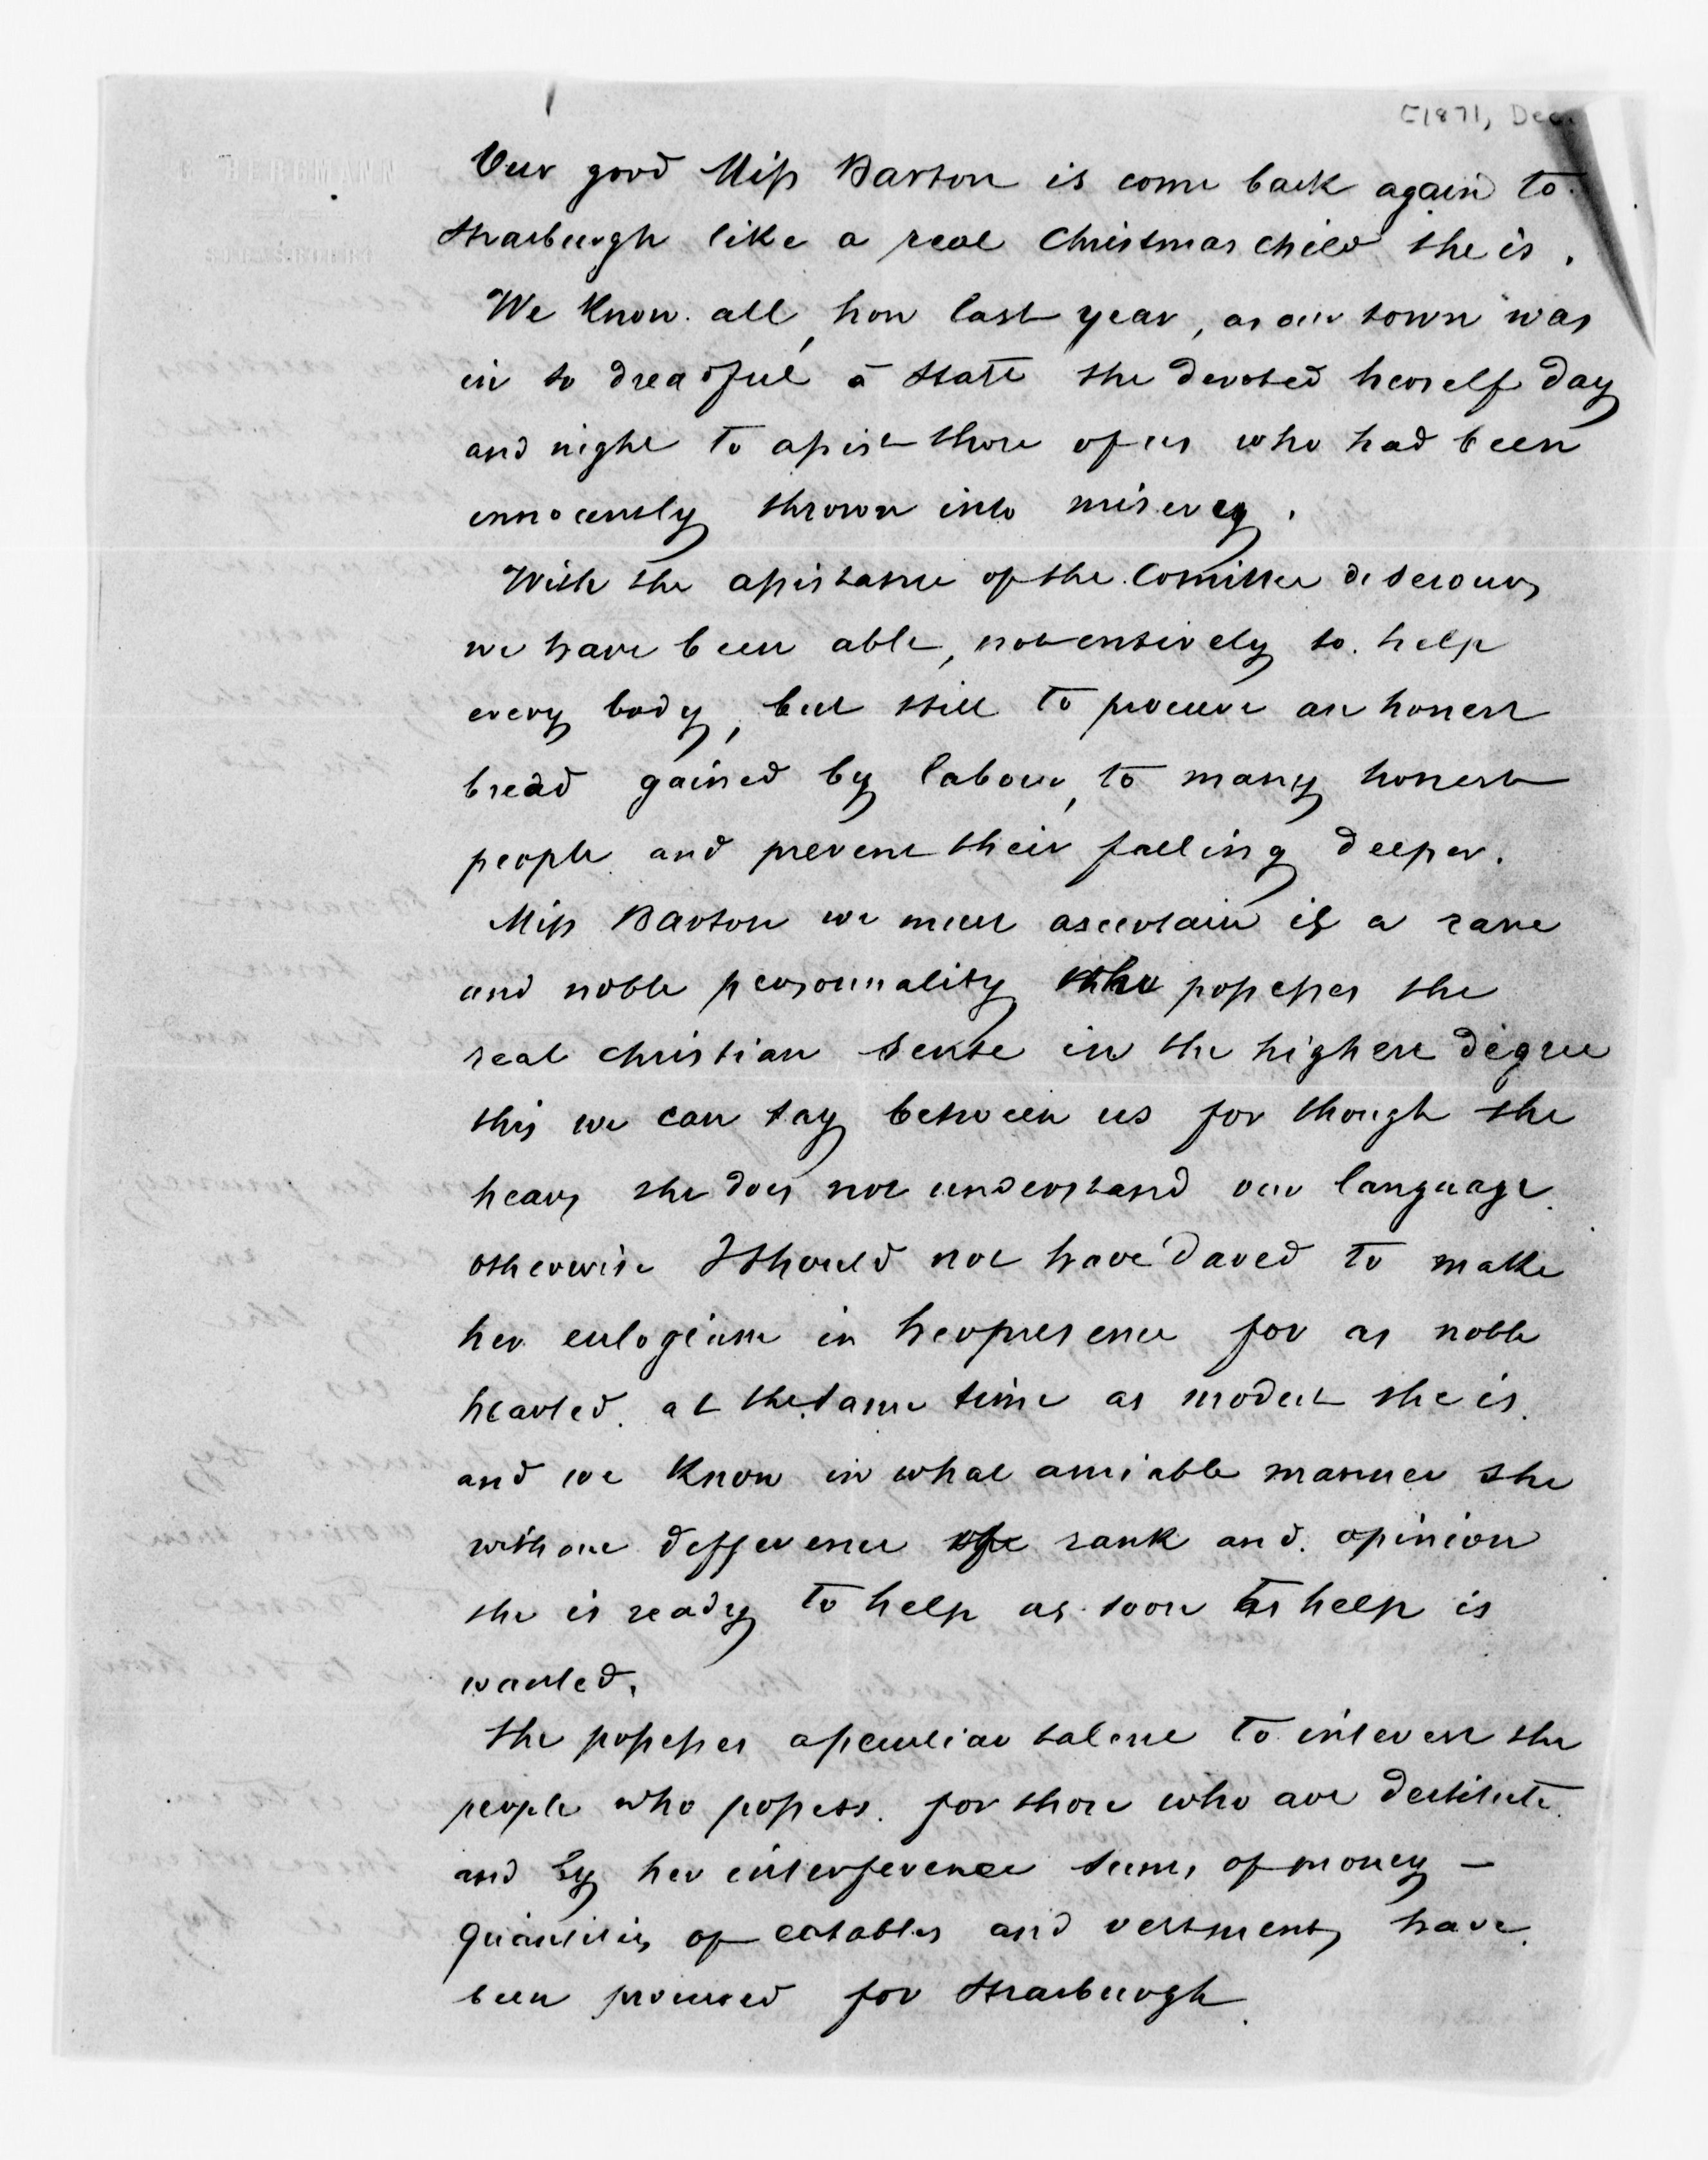 [1871, Dec.
BERGMANN
Our good Miss Barton is come back again to
Strasburgh like a real Christmas child she is.
We know all, how last year, as our town was
in so dreadful a state she devoted herself day
and night to assist those of us who had been
innocently thrown into misery.
With the assistance of the Comittee de secours
we have been able, not entirely to help
every body, but still to procure an honest
bread gained by labour, to many honest
people and prevent their falling deeper.
Miss Barton we must ascertain is a rare
and noble personnality who possesses the
real christian sense in the highest degree
this we can say between us for though she
hears she does not understand our language
otherwise I should not have dared to make
her eulogium in her presence for as noble
hearted at the same time as modest she is
and we know in what amiable manner she
without defference of rank and opinion
she is ready to help as soon as help is
wanted.
She possesses a peculiar talent to interest the
people who possess for those who are destitute
and by her interference sums of money –
quantities of eatables and vestments have
been procured for Strasburgh